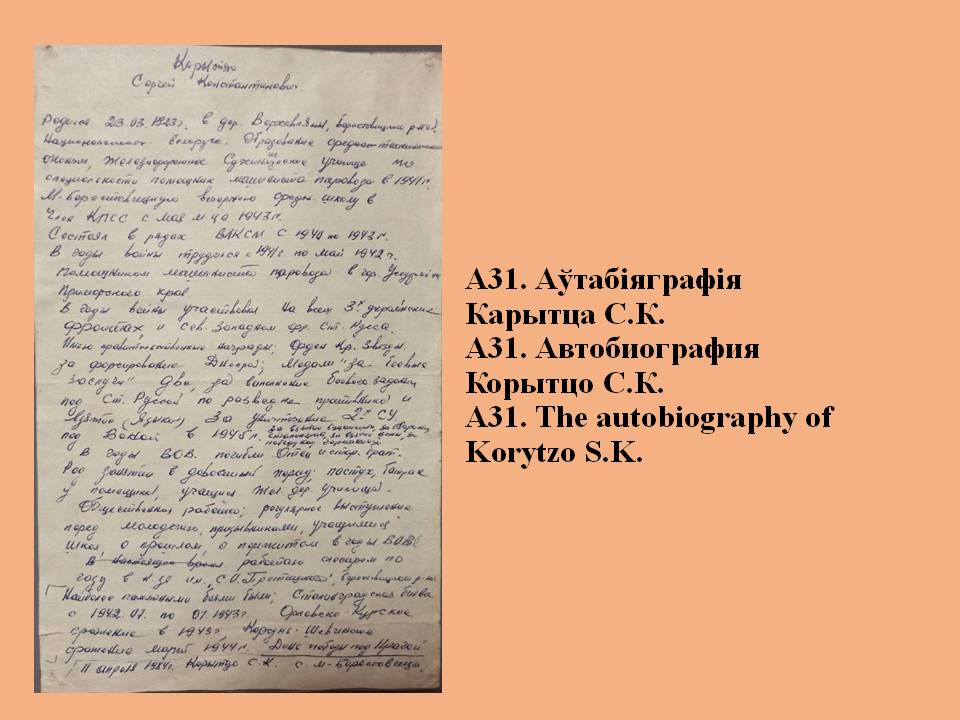 Корытцо
Сергей Константинович.
Родился 23.03.1923г. в дер. Верховляны, Берестовицкого р-на.
Национальность белорус. Образование среднее
Железнодорожное училище по
специальности помощник машиниста паровоза в 1941г.
М-Берестовицкую вечернюю средн. школу в
Член КПСС с мая м-ца 1943г.
Состоял в рядах ВЛКСМ с 1940 по 1943г.
В годы войны трудился с 1941г. по май 1942г.
Помощником машиниста паровоза в гор.
Приморского края
В годы войны участвовал на всех 3х украинских
фронтах, и Сев. Западном фр. Ст. Русса.
Имею правительственные награды; Орден Кр. Звезды.
за форсирование Днепра; Медали "за боевые
заслуги" Две, за выполнение боевого задания
под Ст. Руссой по разведке противника и
взятию (языка), За уничтожение 2х СУ
под Веной в 1945г. за взятие Будапешта, за оборону
Сталинграда, за взятие Вены, за
победу над Германией.
В годы ВОВ. погибли Отец и стар. брат.
Род занятий в довоенный период; пастух, батрак
у помещика, учащийся Жел. дор. училища.
Общественная работа; регулярное выступление
перед молодежью, призывниками, учащимися
школ, о прошлом, о пережитом в годы ВОВ.
В настоящее время работаю слесарем по
в к-зе им. С.О. Притыцкого, Берестовицкого р-на.
Наиболее памятными боями были; Сталинградская битва
с 1942.07. по 01.1943г. Орловско-Курское
сражение в 1943г. Корсунь-Шевченков
сражение март 1944г. День победы под Прагой
11 апреля 1984г. Корытцо С.К. с. М-Берестовица.
А31. Аўтабіяграфія
Карытца С.К.
А31. Автобиография
Корытцо С.К.
A31. The autobiography of
Korytzo S.K.